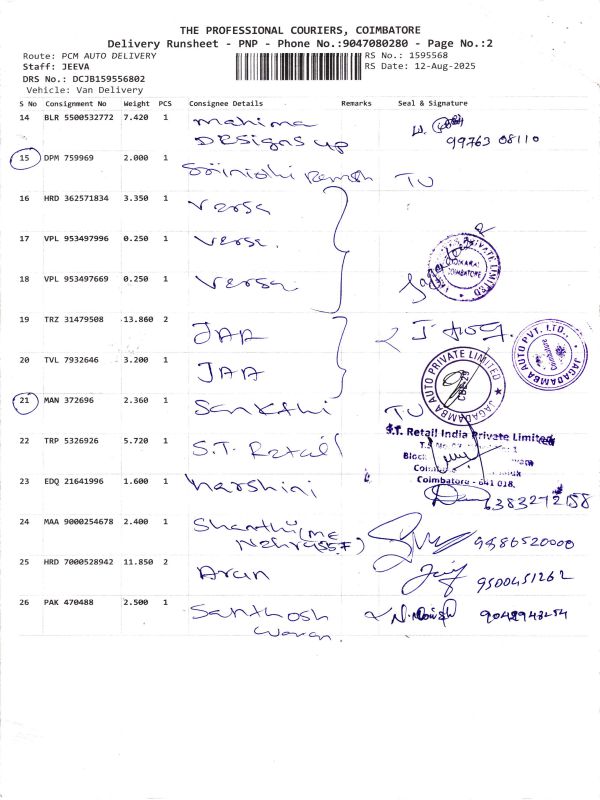 THE PROFESSIONAL COURIERS, COIMBATORE
Delivery Runsheet - PNP - Phone No.:9047080280 - Page No.:2
Route: PCM AUTO DELIVERY
RS No.: 1595568
Staff: JEEVA
RS Date: 12-Aug-2025
DRS No.: DCJB159556802
Vehicle: Van Delivery
S No Consignment No Weight PCS Consignee Details Remarks Seal & Signature
14 BLR 5500532772 7.420 1 Mahima
Designs up
99763 08110
15 DPM 759969 2.000 1 Srinidhi Ramesh TU
16 HRD 362571834 3.350 1 Versa
17 VPL 953497996 0.250 1 Versa
18 VPL 953497669 0.250 1 Versa
PRIVATE LIMITED
COIMBATORE
19 TRZ 31479508 -13.860 2 JAA
JAGADAMBA AUTO PVT. LTD.,
Coimbatore
20 TVL 7932646 -3.200 1 JAA
JAGADAMBA AUTO PRIVATE LIMITED
CBE-29
21 MAN 372696 2.360 1 Sankthi TU
22 TRP 5326926 5.720 1 S.T. Retail
S.T. Retail India Private Limited
Block
Coimbatore - 641 018.
23 EDQ 21641996 1.600 1 Harshini
6383272158
24 MAA 9000254678 2.400 1 Shanthi (Mc
Nehru SS.F)
9486520000
25 HRD 7000528942 11.850 2 Arun
9500451262
26 PAK 470488 2.500 1 Santhosh
waran.